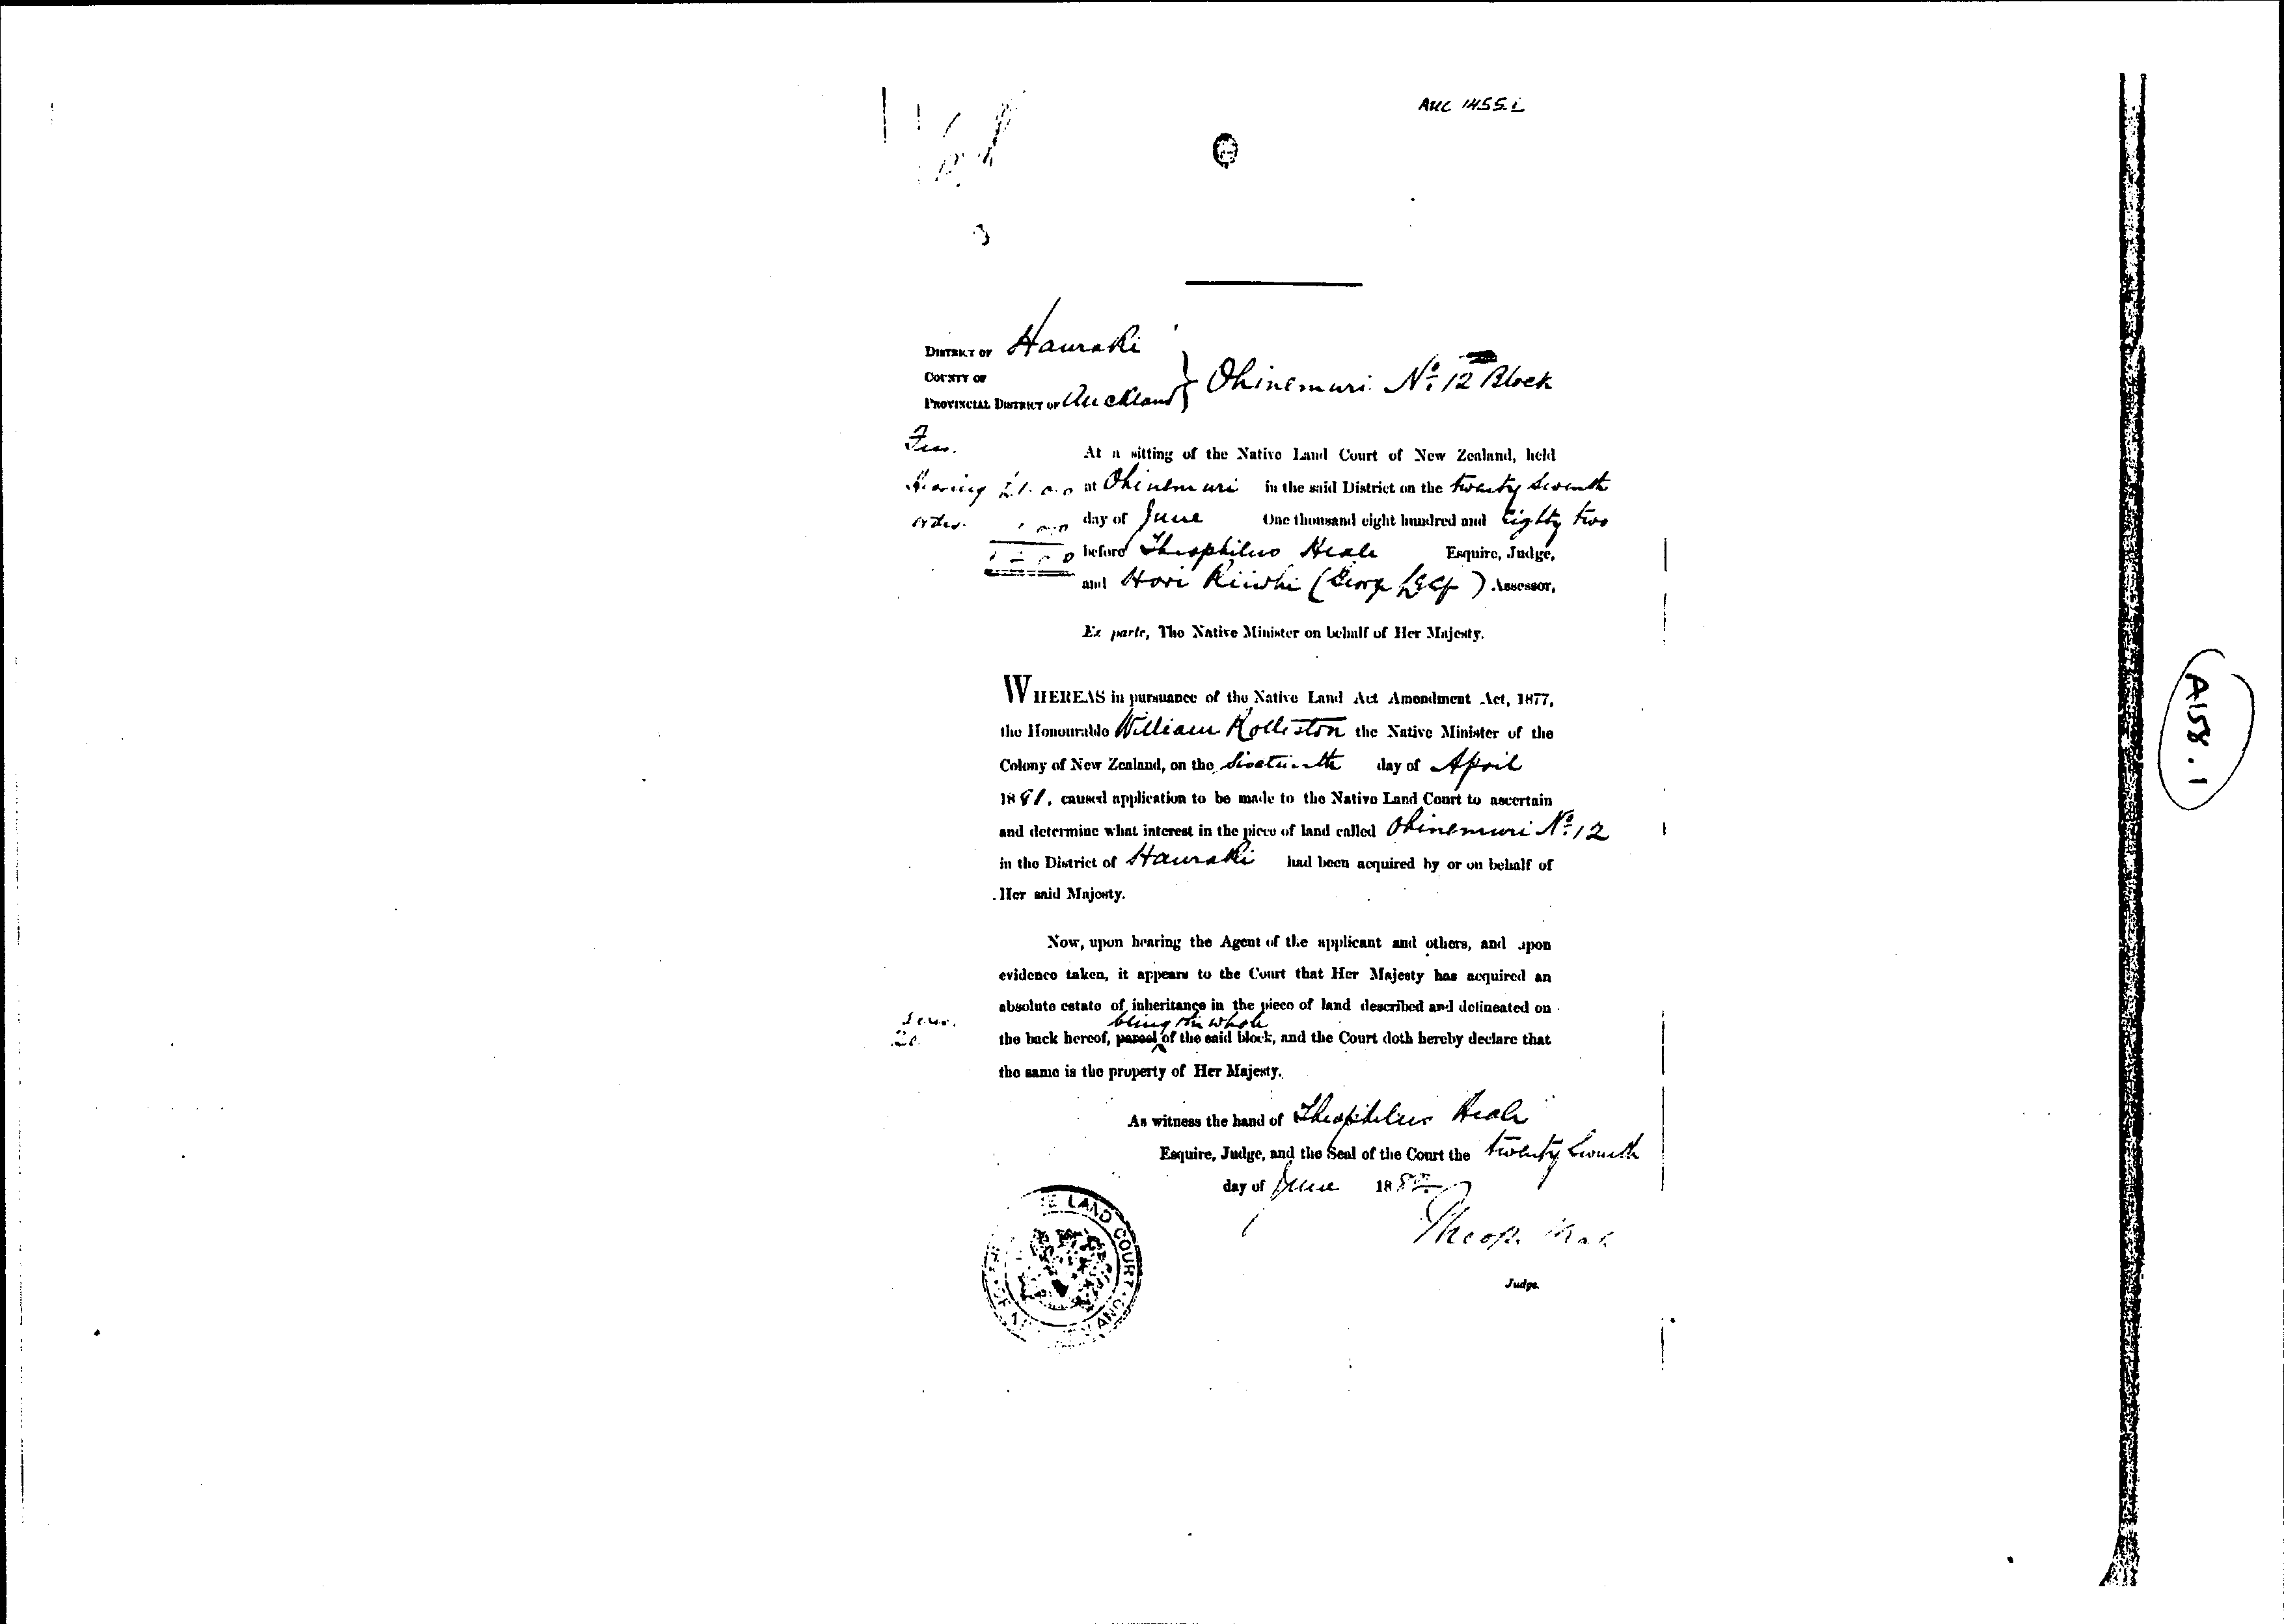 AUC 1455.
DISTRICT OF Hauraki
COUNTY OF
PROVINCIAL DISTRICT OF Auckland } Ohinemuri Nº 12 Block
Fees.
At a sitting of the Native Land Court of New Zealand, held
Hearing £1.0.0 at Ohinemuri in the said District on the twenty seventh
day of June One thousand eight hundred and Eighty two
before Theophilus Heale Esquire, Judge,
and Hori Riiwhi ( ) Assessor,
Ex parte, The Native Minister on behalf of Her Majesty.
WHEREAS in pursuance of the Native Land Act Amendment Act, 1877,
the Honourable William Rolleston the Native Minister of the
Colony of New Zealand, on the Sixteenth day of April
1881, caused application to be made to the Native Land Court to ascertain
and determine what interest in the piece of land called Ohinemuri Nº 12
in the District of Hauraki had been acquired by or on behalf of
Her said Majesty.
Now, upon hearing the Agent of the applicant and others, and upon
evidence taken, it appears to the Court that Her Majesty has acquired an
absolute estate of inheritance in the piece of land described and delineated on
being the whole
the back hereof, parcel of the said block, and the Court doth hereby declare that
the same is the property of Her Majesty.
As witness the hand of Theophilus Heale
Esquire, Judge, and the Seal of the Court the twenty seventh
day of June 1882
Theop. Heale
Judge.
LAND COURT
A158.1